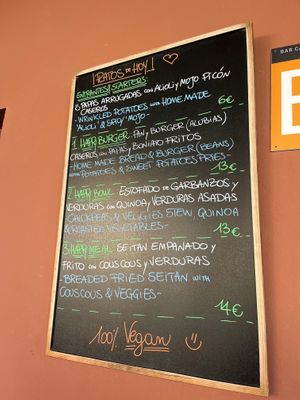 ¡PLATOS DE HOY!
ENTRANTES / STARTERS:
PAPAS ARRUGADAS CON ALIOLI Y MOJO PICÓN
CASEROS
-WRINKLED POTATOES WITH HOMEMADE
ALIOLI & SPICY MOJO-
6€
1 HAPPY BURGER PAN, BURGER (ALUBIAS)
CASEROS CON PAPAS, BONIATO FRITOS
-HOME MADE BREAD & BURGER (BEANS)
WITH POTATOES & SWEET POTATOES FRIES-
13€
2 HAPPY BOWL ESTOFADO DE GARBANZOS Y
VERDURAS CON QUINOA Y VERDURAS ASADAS
-CHICKPEAS & VEGGIES STEW, QUINOA
& ROASTED VEGETABLES-
13€
3 HAPPY MEAL SEITÁN EMPANADO Y
FRITO CON COUSCOUS Y VERDURAS
-BREADED FRIED SEITAN WITH
COUSCOUS & VEGGIES-
14€
100% Vegan
BAR CA